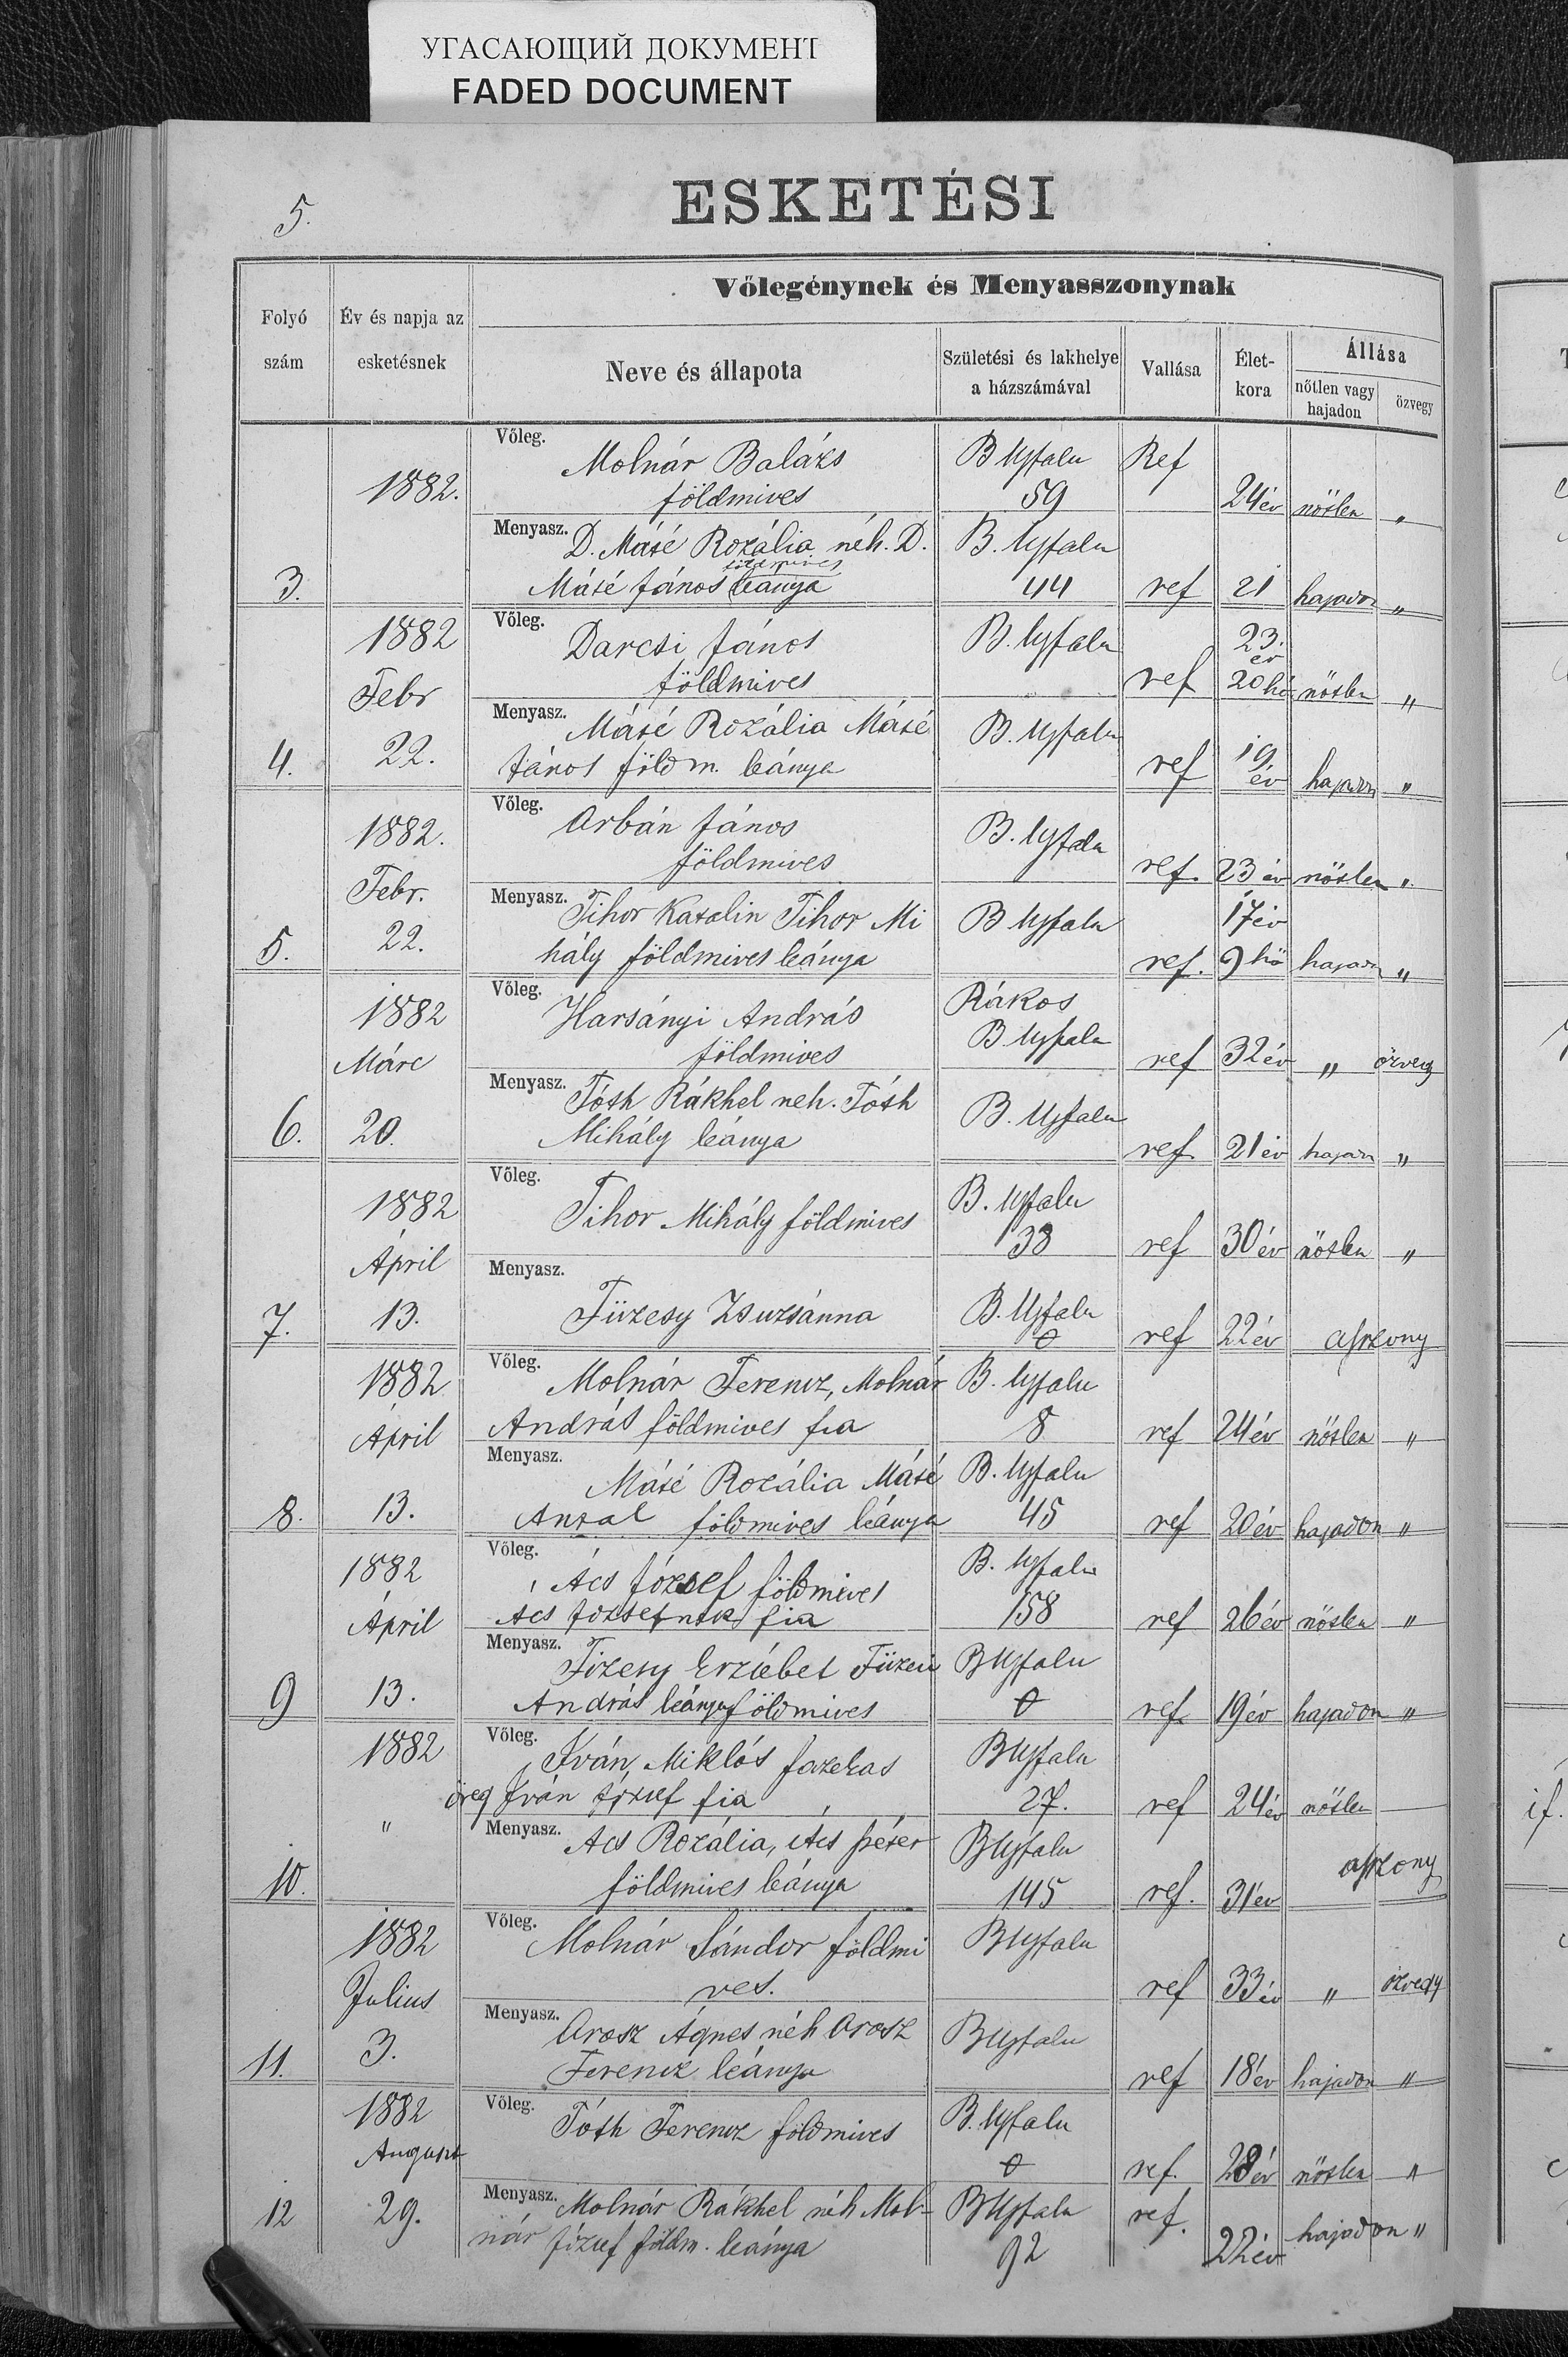 УГАСАЮЩИЙ ДОКУМЕНТ
FADED DOCUMENT
5.
ESKETÉSI
Folyó szám
Év és napja az esketésnek
Vőlegénynek és Menyasszonynak
Neve és állapota
Születési és lakhelye a házszámával
Vallása
Élet-kora
Állása
nőtlen vagy hajadon
özvegy
1882. Vőleg. Molnár Balázs B Ujfalu Ref
földmives 59 24 év nőtlen "
Menyasz. D. Máté Rozália néh. D. B. Ujfalu
földmives
3. Máté János leánya 44 ref 21 hajadon "
1882 Vőleg. Darcsi János B. Ujfalu 23. év
Febr földmives ref 20 hó nőtlen "
Menyasz. Máté Rozália Máté B. Ujfalu
4. 22. János földm. leánya ref 19 év hajadon "
1882. Vőleg. Orbán János B. Ujfalu
Febr. földmives ref. 23 év nőtlen "
Menyasz. Tihor Katalin Tihor Mi B Ujfalu 17 év
5. 22. hály földmives leánya ref. 9 hó hajadon "
1882 Vőleg. Harsányi András Rákos
Márc földmives B Ujfalu ref 32 év " özvegy
Menyasz. Tóth Rákhel neh. Tóth B. Ujfalu
6. 20. Mihály leánya ref. 21 év hajadon "
1882 Vőleg. Tihor Mihály földmives B. Ujfalu
Ápril 38 ref 30 év nőtlen "
Menyasz.
7. 13. Füzesy Zsuzsánna B. Ujfalu 0 ref 22 év asszony
1882 Vőleg. Molnár Ferencz, Molnár B. Ujfalu
Ápril András földmives fia 8 ref 24 év nőtlen "
Menyasz. Máté Rozália Máté B. Ujfalu
8. 13. Antal földmives leánya 45 ref 20 év hajadon "
1882 Vőleg. Ács József földmives B. Ujfalu
Ápril Ács Józsefnek fia 158 ref 26 év nőtlen "
Menyasz. Fizesy Erzsébet Füzesi B Ujfalu
9 13. András leánya földmives 0 ref. 19 év hajadon "
1882 Vőleg. Iván Miklós fazekas B Ujfalu
öreg Iván József fia 27. ref 24 év nőtlen
" Menyasz. Ács Rozália, Ács Péter B Ujfalu asszony
10. földmives leánya 145 ref. 31 év
1882 Vőleg. Molnár Sándor földmi B Ujfalu
Julius ves. ref 33 év " özvegy
Menyasz. Orosz Ágnes néh Orosz B Ujfalu
11. 3. Ferencz leánya ref 18 év hajadon "
1882 Vőleg. Tóth Ferencz földmives B. Ujfalu
August 0 ref. 28 év nőtlen "
12 29. Menyasz. Molnár Rákhel néh Mol- B Ujfalu ref. hajadon "
nár József földm. leánya 92 22 év
if.